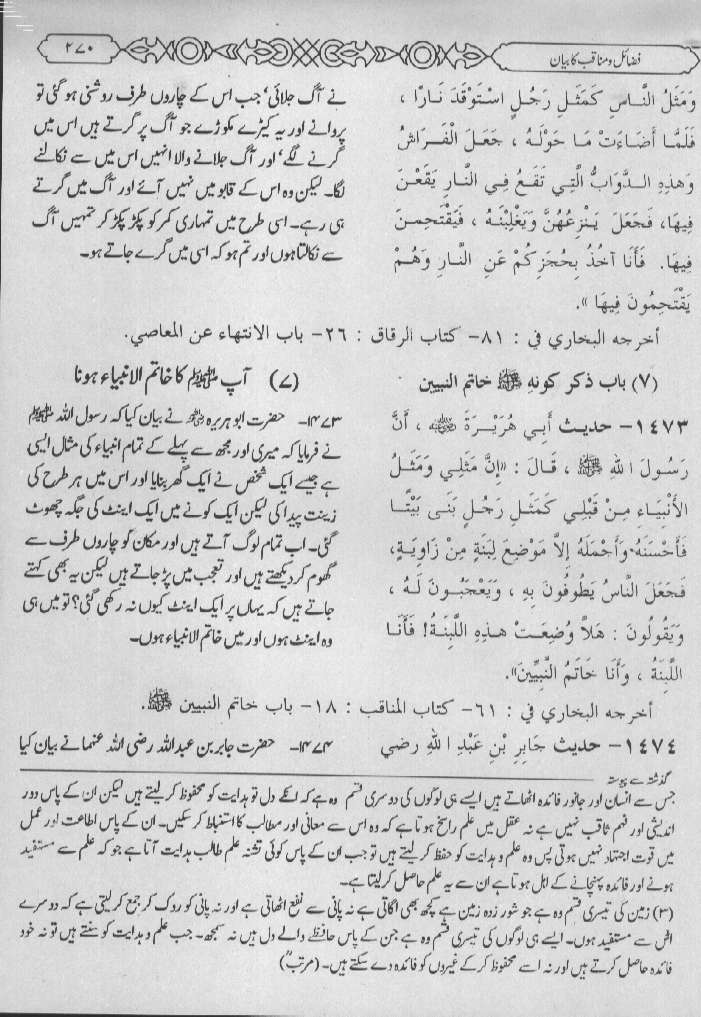 فضائل و مناقب کا بیان
۲۷۰
وَمَثَلُ النَّاسِ كَمَثَلِ رَجُلٍ اسْتَوْقَدَ نَارًا ،
فَلَمَّا أَضَاءَتْ مَا حَوْلَهُ ، جَعَلَ الْفَرَاشُ
وَهٰذِهِ الدَّوَابُّ الَّتِي تَقَعُ فِي النَّارِ يَقَعْنَ
فِيهَا، فَجَعَلَ يَنْزِعُهُنَّ وَيَغْلِبْنَهُ ، فَيَقْتَحِمْنَ
فِيهَا. فَأَنَا آخُذُ بِحُجَزِكُمْ عَنِ النَّارِ وَهُمْ
يَقْتَحِمُونَ فِيهَا ».
نے آگ جلائی‘ جب اس کے چاروں طرف روشنی ہو گئی تو
پروانے اور یہ کیڑے مکوڑے جو آگ پر گرتے ہیں اس میں
گرنے لگے‘ اور آگ جلانے والا انہیں اس میں سے نکالنے
لگا۔ لیکن وہ اس کے قابو میں نہیں آئے اور آگ میں گرتے
ہی رہے۔ اسی طرح میں تمہاری کمر کو پکڑ پکڑ کر تمہیں آگ
سے نکالتا ہوں اور تم ہو کہ اسی میں گرے جاتے ہو۔
أخرجه البخاري في : ٨١- كتاب الرقاق : ٢٦- باب الانتهاء عن المعاصي.
(٧) باب ذكر كونه ﷺ خاتم النبيين
(۷) آپ ﷺ کا خاتم الانبیاء ہونا
١٤٧٣- حديث أَبِي هُرَيْرَةَ ، أَنَّ
رَسُولَ اللهِ ﷺ ، قَالَ : «إِنَّ مَثَلِي وَمَثَلُ
الأَنْبِيَاءِ مِنْ قَبْلِي كَمَثَلِ رَجُلٍ بَنَى بَيْتًا
فَأَحْسَنَهُ وَأَجْمَلَهُ إِلاَّ مَوْضِعَ لِبْنَةٍ مِنْ زَاوِيَةٍ،
فَجَعَلَ النَّاسُ يَطُوفُونَ بِهِ ، وَيَعْجَبُونَ لَهُ ،
وَيَقُولُونَ : هَلاَّ وُضِعَتْ هٰذِهِ اللَّبِنَةُ! فَأَنَا
اللَّبِنَةُ ، وَأَنَا خَاتَمُ النَّبِيِّينَ».
۱۴۷۳- حضرت ابو ہریرہ نے بیان کیا کہ رسول اللہ ﷺ
نے فرمایا کہ میری اور مجھ سے پہلے کے تمام انبیاء کی مثال ایسی
ہے جیسے ایک شخص نے ایک گھر بنایا اور اس میں ہر طرح کی
زینت پیدا کی لیکن ایک کونے میں ایک اینٹ کی جگہ چھوٹ
گئی۔ اب تمام لوگ آتے ہیں اور مکان کو چاروں طرف سے
گھوم کر دیکھتے ہیں اور تعجب میں پڑ جاتے ہیں لیکن یہ بھی کہتے
جاتے ہیں کہ یہاں پر ایک اینٹ کیوں نہ رکھی گئی؟ تو میں ہی
وہ اینٹ ہوں اور میں خاتم الانبیاء ہوں۔
أخرجه البخاري في : ٦١- كتاب المناقب : ١٨- باب خاتم النبيين ﷺ.
١٤٧٤- حديث جَابِرِ بْنِ عَبْدِ اللهِ رضي
۱۴۷۴- حضرت جابر بن عبداللہ رضی اللہ عنہما نے بیان کیا
گذشتہ سے پیوستہ
جس سے انسان اور جانور فائدہ اٹھاتے ہیں ایسے ہی لوگوں کی دوسری قسم وہ ہے کہ انکے دل تو ہدایت کو محفوظ کر لیتے ہیں لیکن ان کے پاس دور
اندیشی اور فہم ثاقب نہیں ہے نہ عقل میں علم راسخ ہوتا ہے کہ وہ اس سے معانی اور مطالب کا استنباط کر سکیں۔ ان کے پاس اطاعت اور عمل
میں قوت اجتہاد نہیں ہوتی پس وہ علم و ہدایت کو حفظ کر لیتے ہیں تو جب ان کے پاس کوئی تشنہ علم طالب ہدایت آتا ہے جو کہ علم سے مستفید
ہونے اور فائدہ پہنچانے کے اہل ہوتا ہے ان سے یہ علم حاصل کر لیتا ہے۔
(۳) زمین کی تیسری قسم وہ ہے جو شور زدہ زمین ہے کچھ بھی اگاتی ہے نہ پانی سے نفع اٹھاتی ہے اور نہ پانی کو روک کر جمع کر لیتی ہے کہ دوسرے
اس سے مستفید ہوں۔ ایسے ہی لوگوں کی تیسری قسم وہ ہے جن کے پاس حافظے والے دل ہیں نہ سمجھ۔ جب علم و ہدایت کو سنتے ہیں تو نہ خود
فائدہ حاصل کرتے ہیں اور نہ اسے محفوظ کر کے غیروں کو فائدہ دے سکتے ہیں۔ (مرتبؒ)